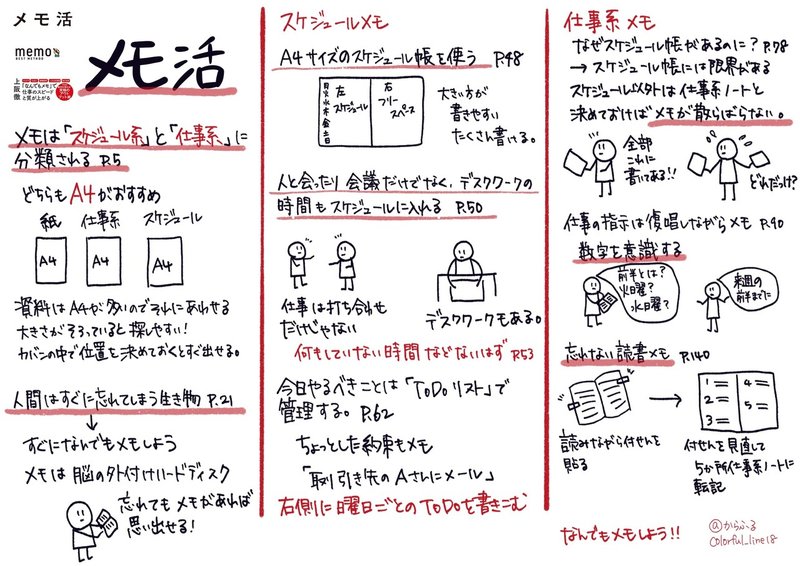 メモ活
memo
BEST METHOD
上阪徹
「なんでもメモ」で
仕事のスピード
と質が上がる
メモ活
メモは「スケジュール系」と「仕事系」に
分類される P.5
どちらもA4がおすすめ
紙 仕事系 スケジュール
A4 A4 A4
資料はA4が多いのでそれにあわせる
大きさがそろっていると探しやすい!
カバンの中で位置を決めておくとすぐ出せる。
人間はすぐに忘れてしまう生き物 P.21
↓
すぐになんでもメモしよう
メモは脳の外付けハードディスク
忘れてもメモがあれば
思い出せる!
スケジュールメモ
A4サイズのスケジュール帳を使う P.48
日月火水木金土
左
スケジュール
右
フリー
スペース
大きい方が
書きやすい
たくさん書ける。
人と会ったり会議だけでなく、デスクワークの
時間もスケジュールに入れる P.50
仕事は打ち合わせ
だけじゃない
デスクワークもある。
何もしていない時間などないはず P.53
今日やるべきことは「ToDoリスト」で
管理する。P.62
ちょっとした約束もメモ
「取り引き先のAさんにメール」
右側に曜日ごとのToDoを書きこむ
仕事系メモ
なぜスケジュール帳があるのに? P.78
→ スケジュール帳には限界がある
スケジュール以外は仕事系ノートと
決めておけばメモが散らばらない。
全部
これに
書いてある!!
どれだっけ?
仕事の指示は復唱しながらメモ P.90
数字を意識する
前半とは?
火曜?
水曜?
来週の
前半までに
忘れない読書メモ P.140
1 ー 4 ー
2 ー 5 ー
3 ー
読みながら付せんを
貼る
付せんを見直して
5か所仕事系ノートに
転記
なんでもメモしよう!!
@からふる
colorful_line18